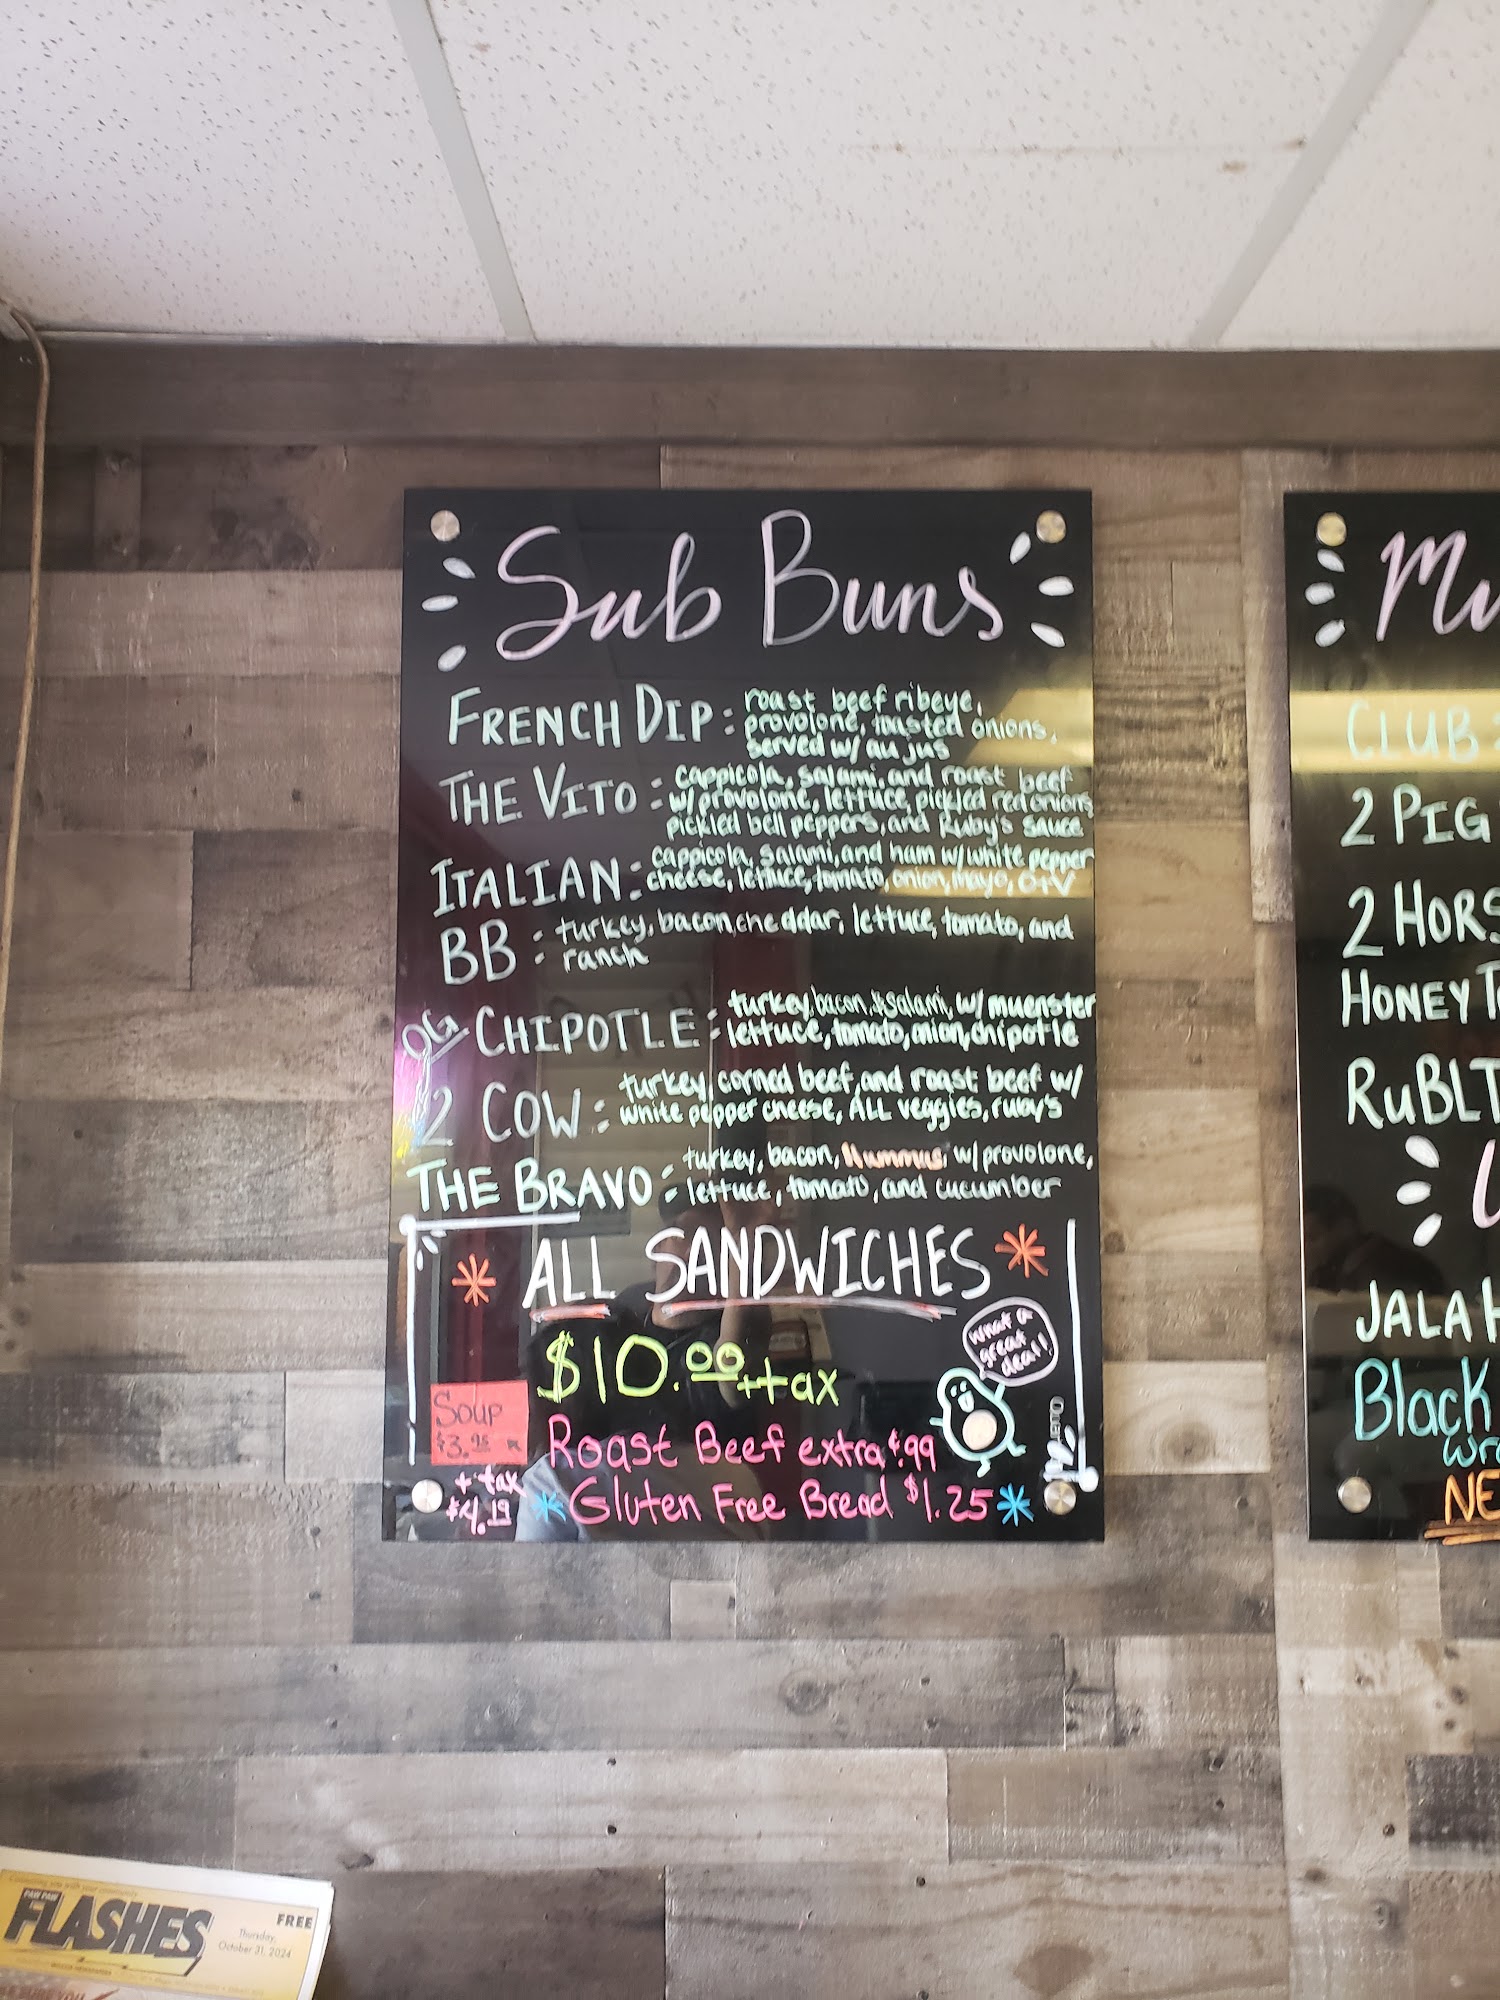 Sub Buns
FRENCH DIP: roast beef ribeye,
provolone, toasted onions,
served w/ au jus
THE VITO: cappicola, salami, and roast beef
w/ provolone, lettuce, pickled red onions
pickled bell peppers, and Ruby's sauce
ITALIAN: cappicola, salami, and ham w/ white pepper
cheese, lettuce, tomato, onion, mayo, O+V
BB: turkey, bacon, cheddar, lettuce, tomato, and
ranch
OG CHIPOTLE: turkey, bacon, & salami, w/ muenster
lettuce, tomato, onion, chipotle
2 COW: turkey, corned beef, and roast beef w/
white pepper cheese, ALL veggies, ruby's
THE BRAVO: turkey, bacon, Hummus, w/ provolone,
lettuce, tomato, and cucumber
* ALL SANDWICHES *
$10.00 + tax
what a
great
deal!
Roast Beef extra .99
*Gluten Free Bread $1.25*
SOUP
$3.95
+ tax
$4.19
Mu
CLUB:
2 PIG
2 HORS
HONEY T
RuBLT
JALA H
Black
wra
NE
PAW PAW
FLASHES
FREE
Thursday,
October 31, 2024